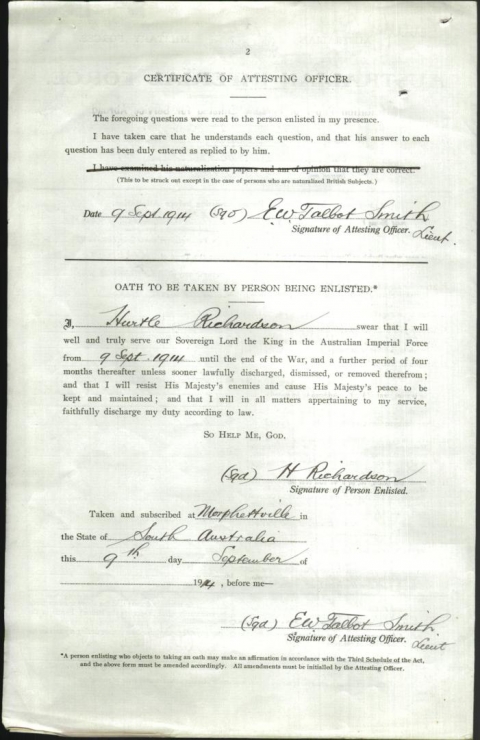 2
CERTIFICATE OF ATTESTING OFFICER.
The foregoing questions were read to the person enlisted in my presence.
I have taken care that he understands each question, and that his answer to each
question has been duly entered as replied to by him.
I have examined his naturalization papers and am of opinion that they are correct.
(This to be struck out except in the case of persons who are naturalized British Subjects.)
Date 9 Sept 1914 (Sgd) E.W. Talbot Smith
Signature of Attesting Officer. Lieut.
OATH TO BE TAKEN BY PERSON BEING ENLISTED.*
I, Hurtle Richardson swear that I will
well and truly serve our Sovereign Lord the King in the Australian Imperial Force
from 9 Sept. 1914 until the end of the War, and a further period of four
months thereafter unless sooner lawfully discharged, dismissed, or removed therefrom;
and that I will resist His Majesty's enemies and cause His Majesty's peace to be
kept and maintained; and that I will in all matters appertaining to my service,
faithfully discharge my duty according to law.
SO HELP ME, GOD.
(Sgd) H Richardson
Signature of Person Enlisted.
Taken and subscribed at Morphettville in
the State of South Australia
this 9th day September of
1914, before me—
(Sgd) E.W. Talbot Smith
Signature of Attesting Officer. Lieut
*A person enlisting who objects to taking an oath may make an affirmation in accordance with the Third Schedule of the Act,
and the above form must be amended accordingly. All amendments must be initialled by the Attesting Officer.